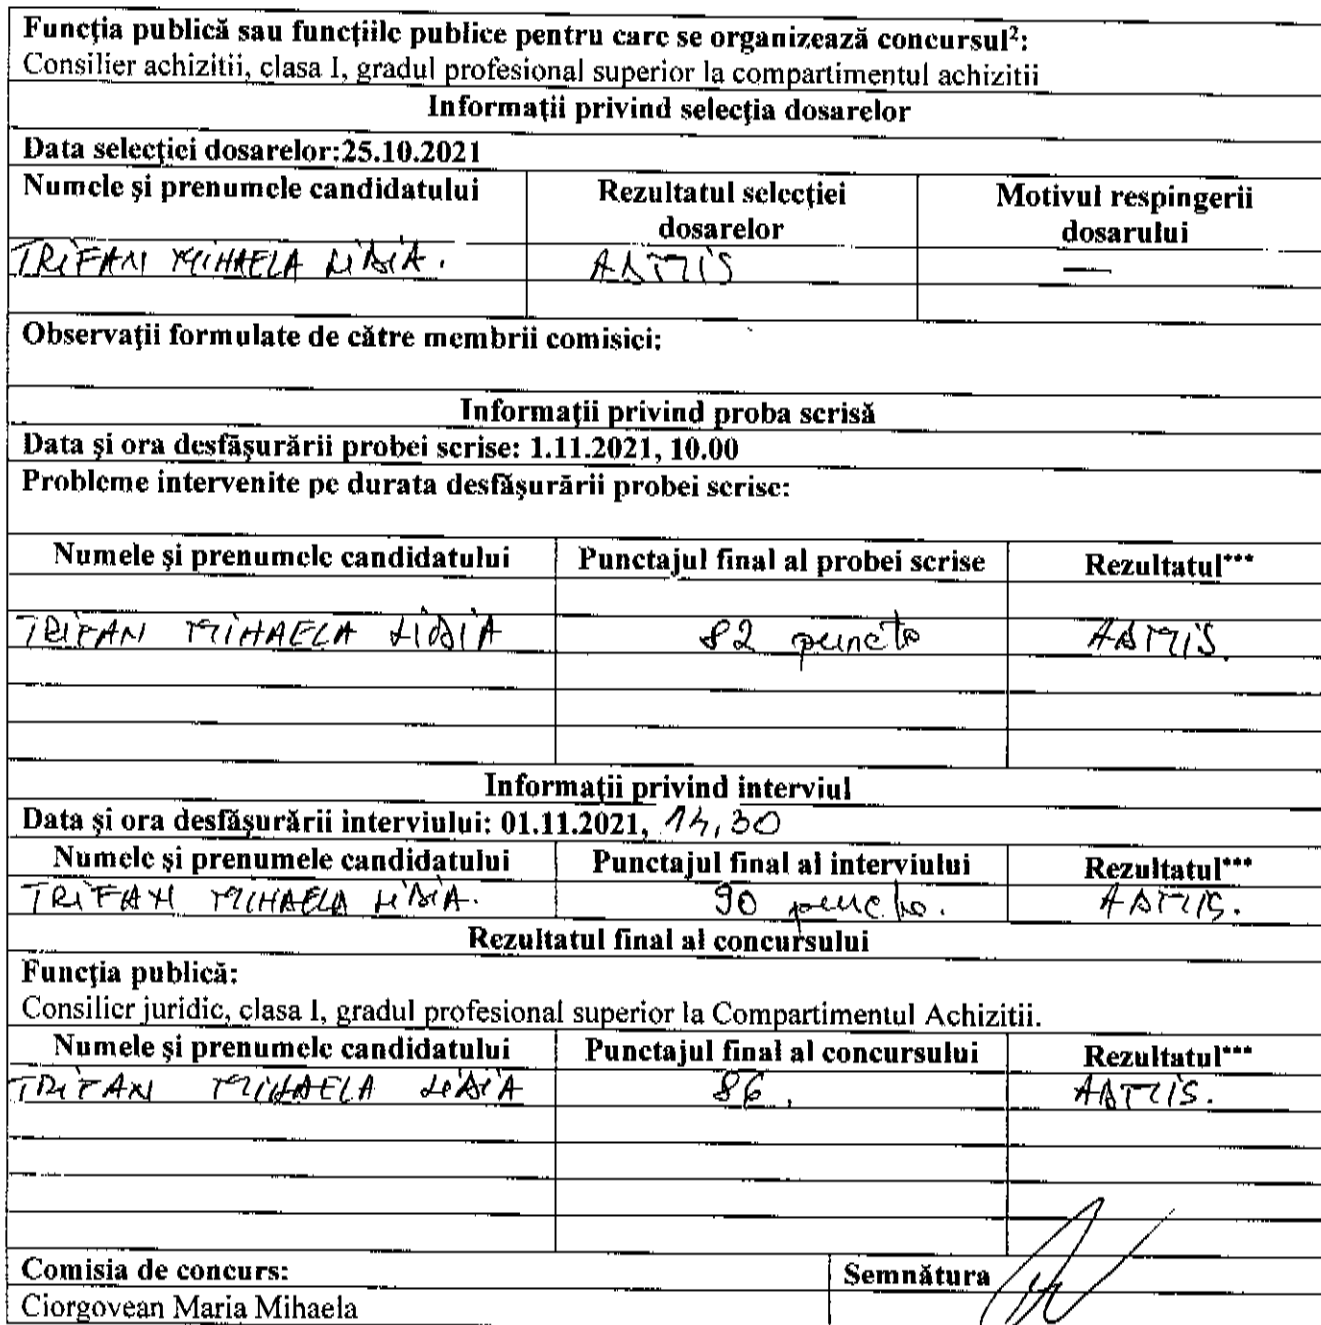 Funcția publică sau funcțiile publice pentru care se organizează concursul²:
Consilier achizitii, clasa I, gradul profesional superior la compartimentul achizitii
Informații privind selecția dosarelor
Data selecției dosarelor:25.10.2021
Numele și prenumele candidatului Rezultatul selecției dosarelor Motivul respingerii dosarului
TRIFAN MIHAELA LIDIA. ADMIS —
Observații formulate de către membrii comisiei:
Informații privind proba scrisă
Data și ora desfășurării probei scrise: 1.11.2021, 10.00
Probleme intervenite pe durata desfășurării probei scrise:
Numele și prenumele candidatului Punctajul final al probei scrise Rezultatul***
TRIFAN MIHAELA LIDIA 82 puncte ADMIS.
Informații privind interviul
Data și ora desfășurării interviului: 01.11.2021, 14,30
Numele și prenumele candidatului Punctajul final al interviului Rezultatul***
TRIFAN MIHAELA LIDIA. 90 puncte. ADMIS.
Rezultatul final al concursului
Funcția publică:
Consilier juridic, clasa I, gradul profesional superior la Compartimentul Achizitii.
Numele și prenumele candidatului Punctajul final al concursului Rezultatul***
TRIFAN MIHAELA LIDIA 86. ADMIS.
Comisia de concurs: Semnătura
Ciorgovean Maria Mihaela